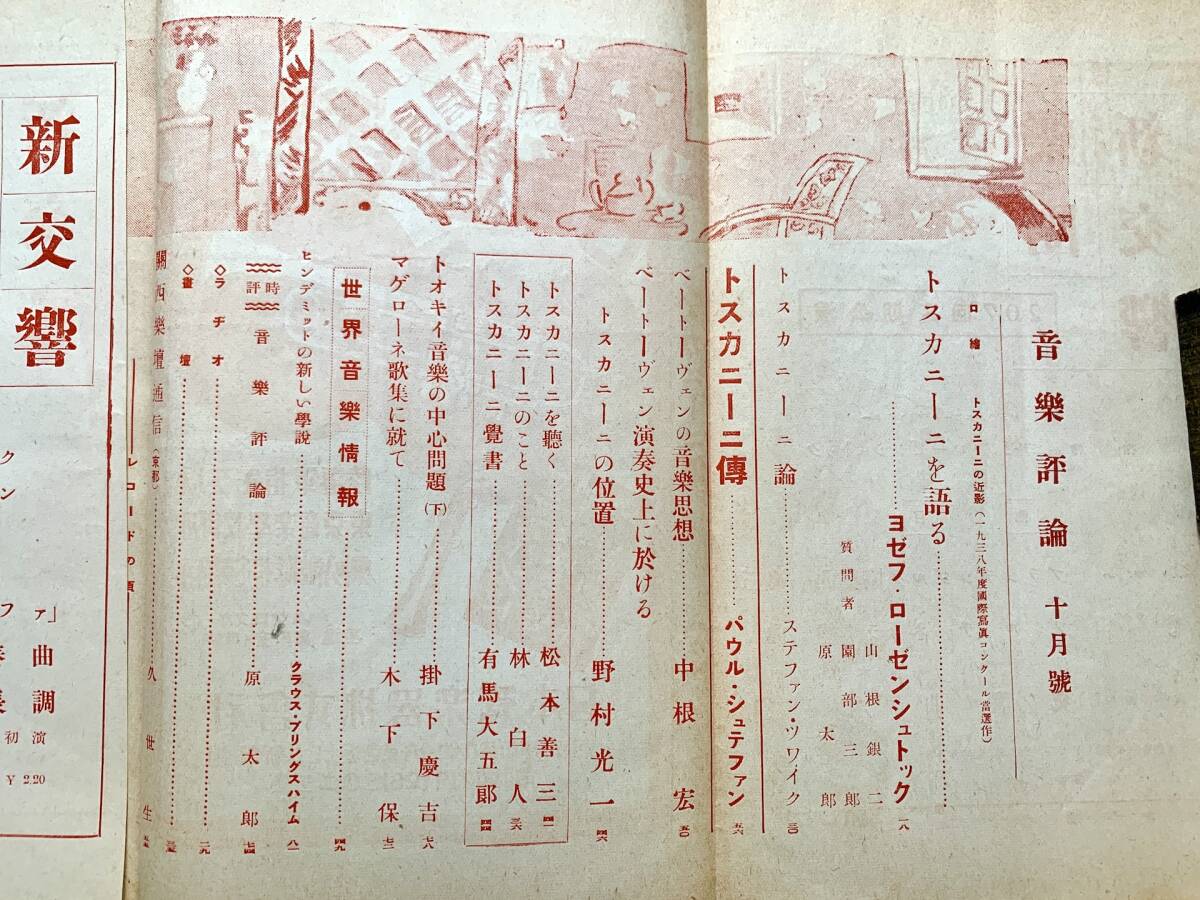 音樂評論 十月號
口繪 トスカニーニの近影(一九三八年度國際寫眞コンクール當選作)
トスカニーニを語る
ヨゼフ・ローゼンシュトック 一八
山根銀二
質問者 園部三郎
原太郎
トスカニーニ論 ステファン・ツワイク 三〇
トスカニーニ傳 パウル・シュテファン 五六
ベートーヴェンの音樂思想 中根宏 五〇
ベートーヴェン演奏史上に於ける
トスカニーニの位置 野村光一 四六
トスカニーニを聽く 松本善三 四一
トスカニーニのこと 林白人 三六
トスカニーニ覺書 有馬大五郎 四四
トオキイ音樂の中心問題(下) 掛下慶吉 七八
マゲローネ歌集に就て 木下保 七三
世界音樂情報 四九
ヒンデミットの新しい學說 クラウス・プリングスハイム 八一
時評 音樂評論 原太郎 七四
◇ラヂオ 二九
◇畫壇
關西樂壇通信(京都) 久世生
レコードの頁
新交響
クン
ファ」
曲調
初演
¥2.20